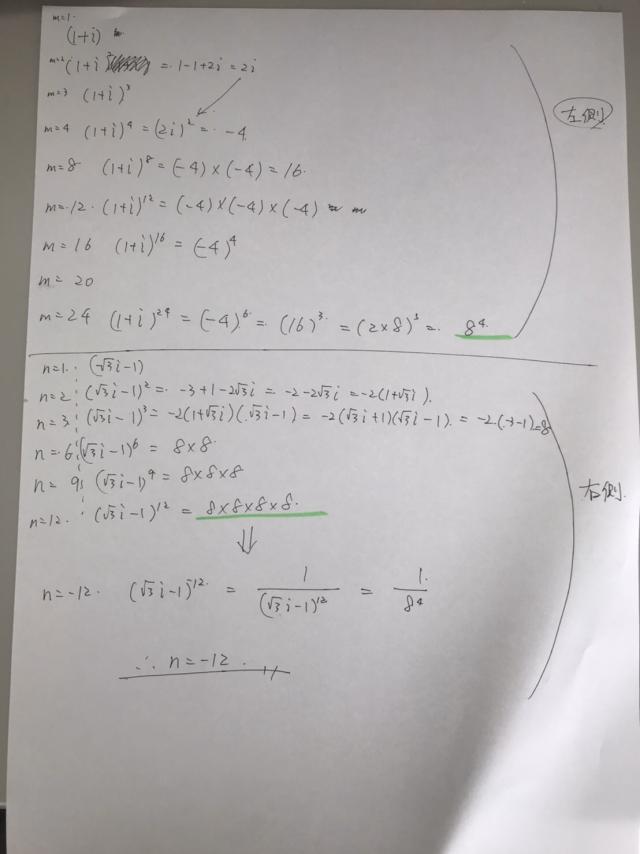 m=1.
(1+i)
m=2 (1+i)² = 1-1+2i = 2i
m=3 (1+i)³
m=4 (1+i)⁴ = (2i)² = -4
左側
m=8 (1+i)⁸ = (-4)×(-4) = 16.
m=12. (1+i)¹² = (-4)×(-4)×(-4)
m=16 (1+i)¹⁶ = (-4)⁴
m= 20
m=24 (1+i)²⁴ = (-4)⁶ = (16)³ = (2×8)³ = 8⁴
n=1. (√3i-1)
n=2 (√3i-1)² = -3+1-2√3i = -2-2√3i = -2(1+√3i).
n=3 (√3i-1)³ = -2(1+√3i)(√3i-1) = -2(√3i+1)(√3i-1). = -2.(-3-1)=8
n=6 (√3i-1)⁶ = 8×8.
n= 9 (√3i-1)⁹ = 8×8×8
右側
n=12. (√3i-1)¹² = 8×8×8×8.
⇓
n=-12. (√3i-1)⁻¹² = 1/(√3i-1)¹² = 1/8⁴
∴ n=-12.